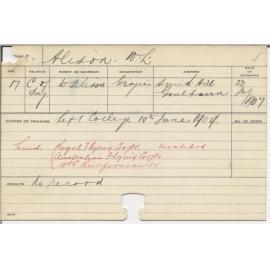 Alison. W L
AGE RELIGION PARENT OR GUARDIAN OCCUPATION ADDRESS
17 C of E W Alison Grazier Hill 23
Goulburn 1907
COURSE OF TRAINING Left College 10th June 1909.
Royal Flying Corps. Invalided
Australian Flying Corps
10th Reinforcements
RESULTS No record
DATE